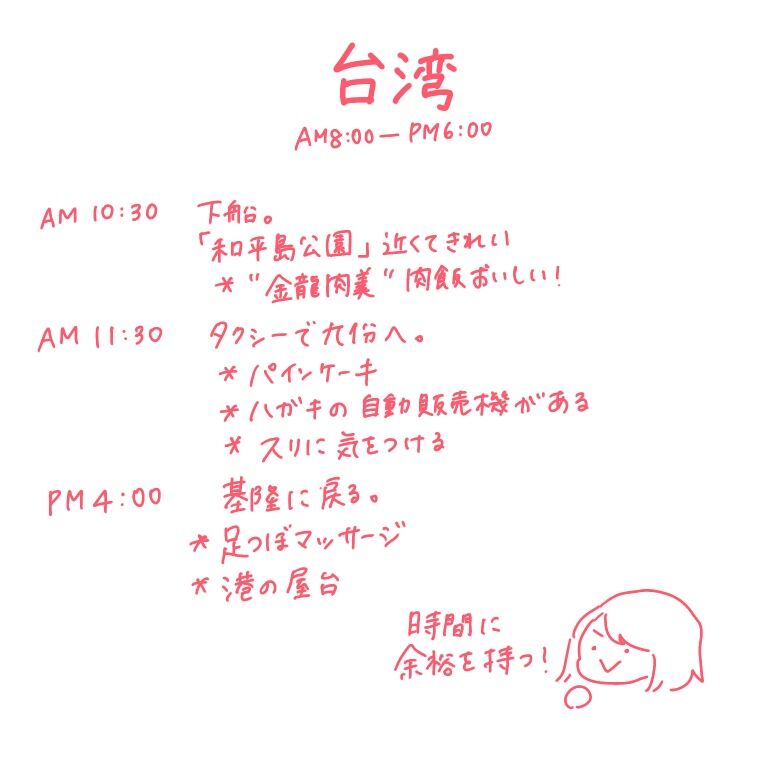 台湾
AM8:00 — PM6:00
AM 10:30 下船。
「和平島公園」近くてきれい
* "金龍肉羹" 肉飯おいしい!
AM 11:30 タクシーで九份へ。
* パインケーキ
* ハガキの自動販売機がある
* スリに気をつける
PM 4:00 基隆に戻る。
* 足つぼマッサージ
* 港の屋台
時間に
余裕を持つ!